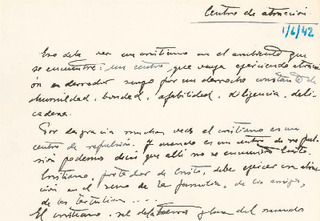 Centro de atracción
1/6/42
Eso debe ser un cristiano en el ambiente que
se encuentre: un centro, que vaya ejerciendo atracci
ón en derredor suyo por un derroche constante de
humildad, bondad, afabilidad, diligencia, deli-
cadeza.
Por desgracia muchas veces el cristiano es un
centro de repulsión. Y cuando es un centro de repul
sión podemos decir que allí no se encuentra Cristo
Cristiano, portador de Cristo, debe ejercer esa atrac
ción en el seno de la familia, de los amigos,
de las tertulias ....
El cristiano, sal de la tierra y luz del mundo